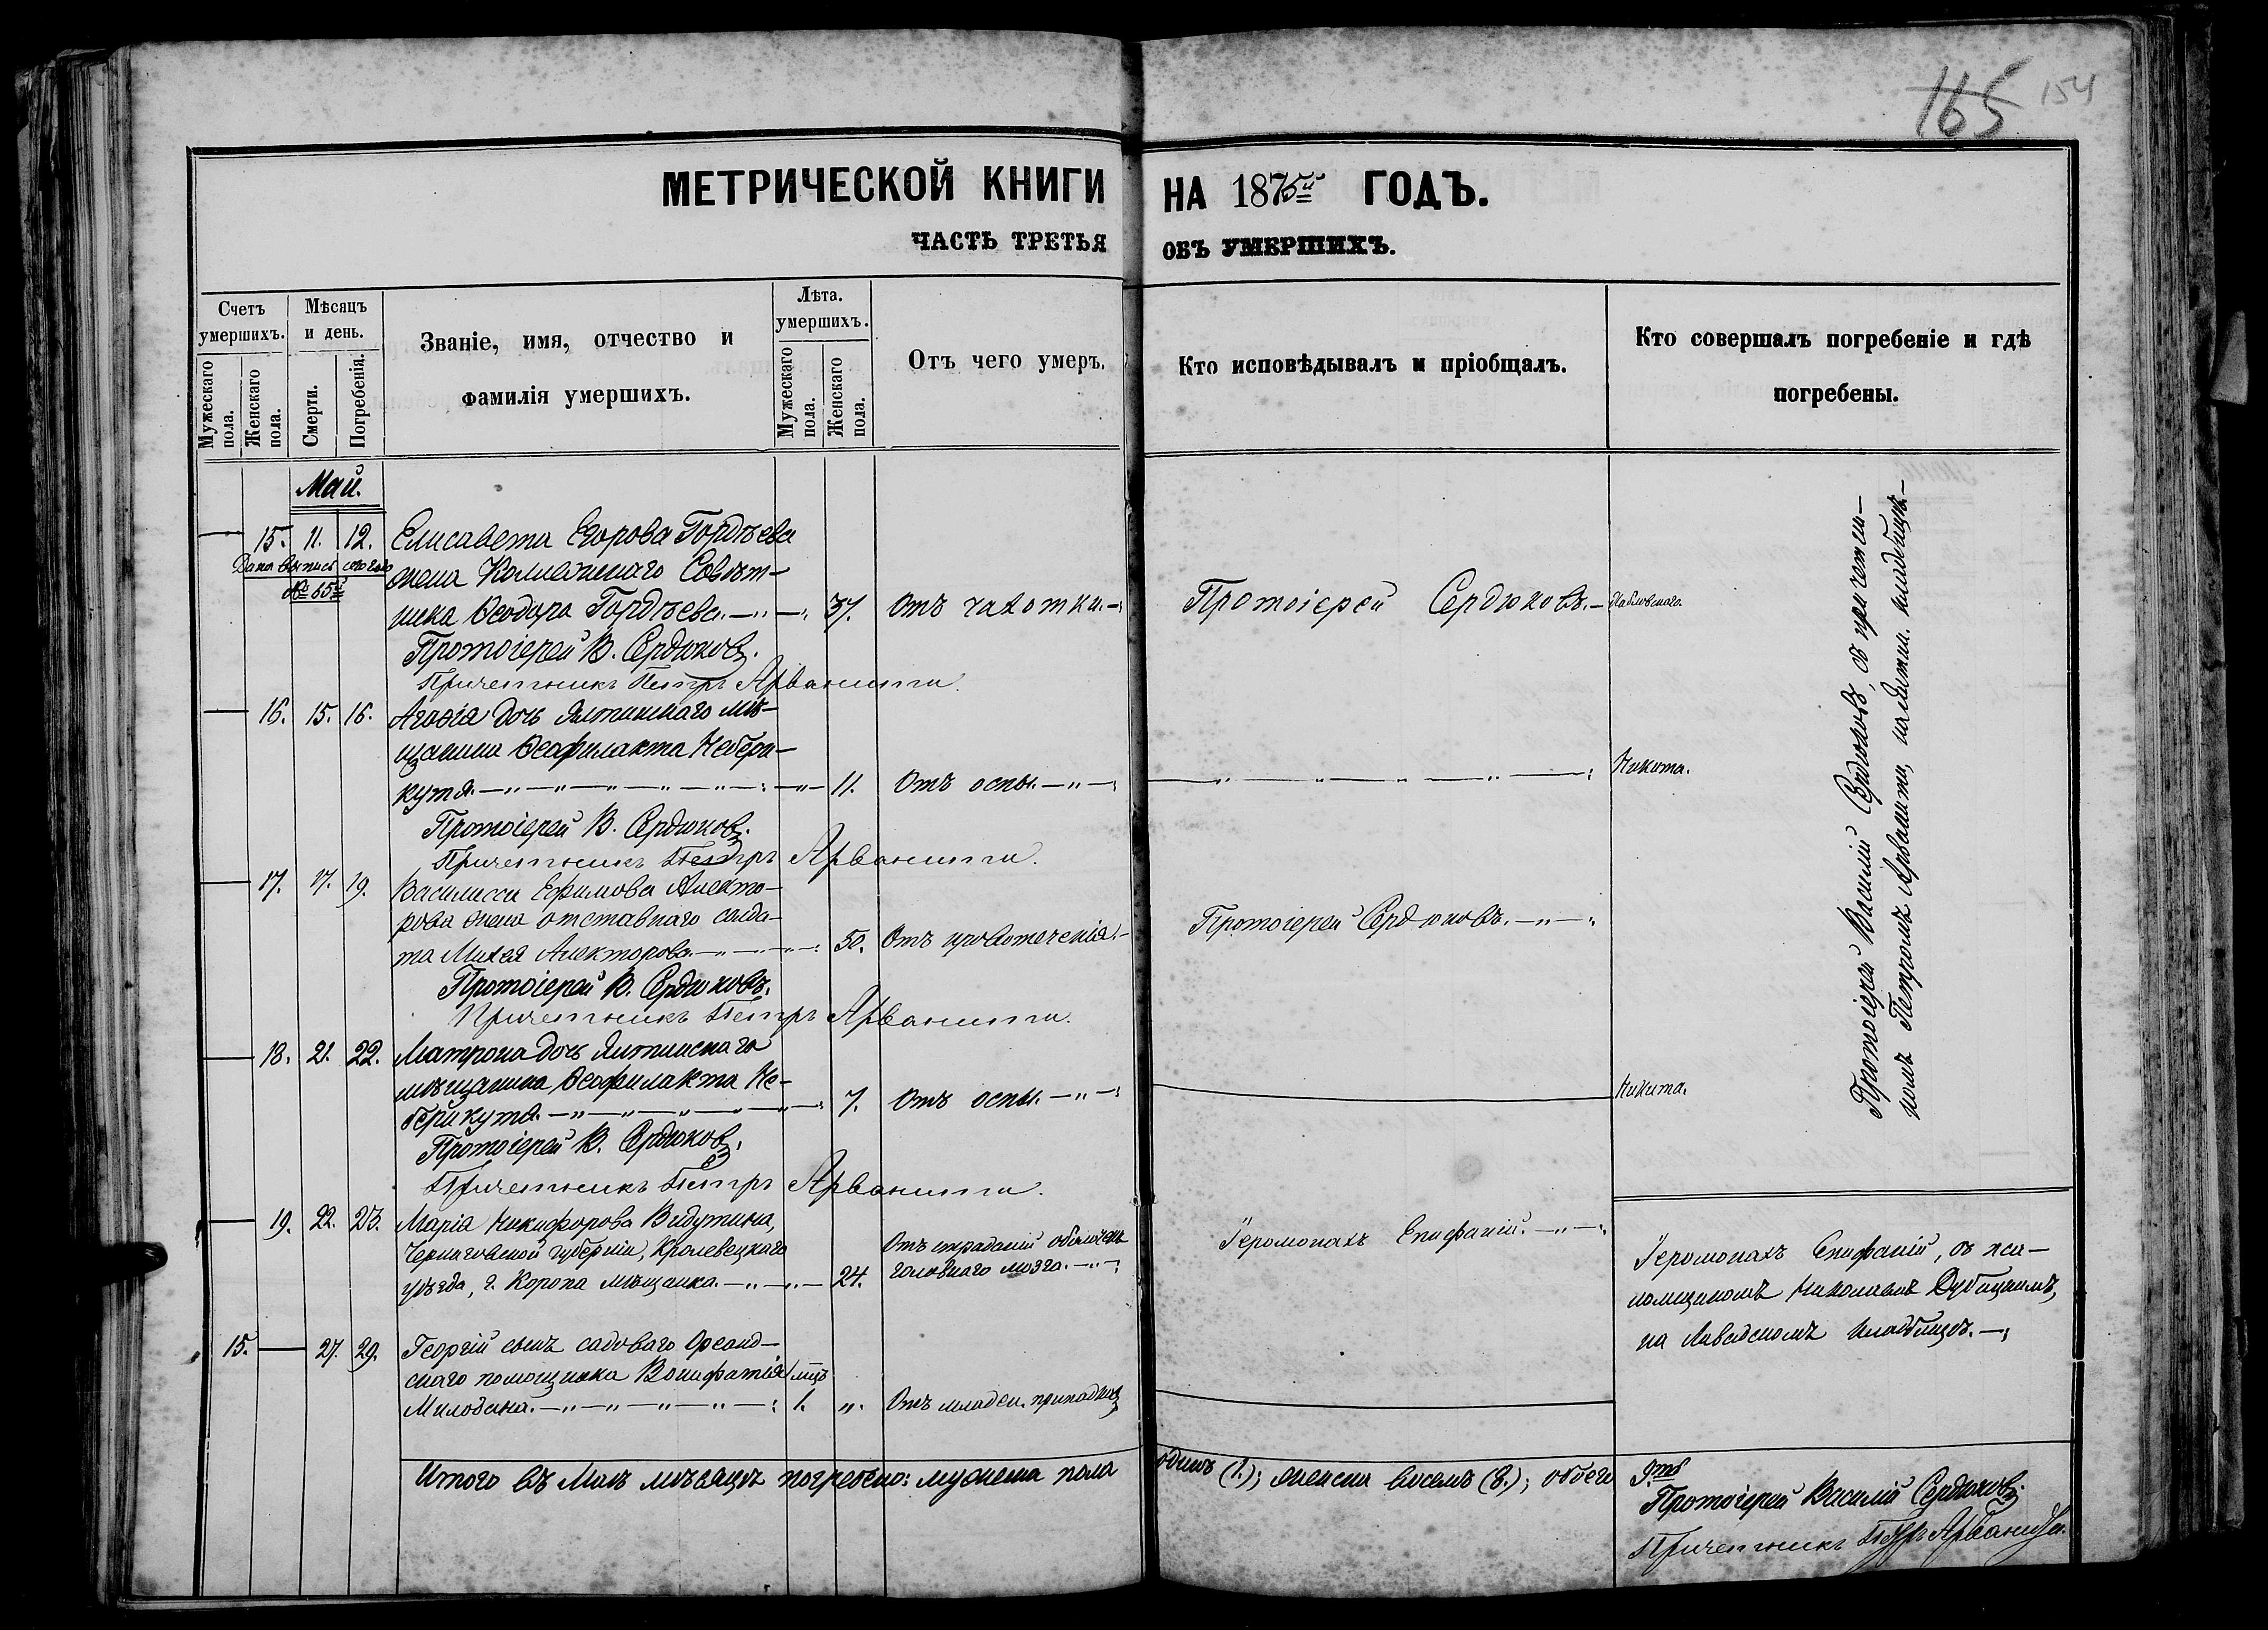 165 154
МЕТРИЧЕСКОЙ КНИГИ НА 1875й ГОДЪ.
ЧАСТЬ ТРЕТЬЯ ОБЪ УМЕРШИХЪ.
Счетъ умершихъ.
Мужескаго пола.
Женскаго пола.
Мѣсяцъ и день.
Смерти.
Погребенія.
Званіе, имя, отчество и
фамилія умершихъ.
Лѣта.
умершихъ.
Мужескаго пола.
Женскаго пола.
Отъ чего умеръ.
Кто исповѣдывалъ и пріобщалъ.
Кто совершалъ погребеніе и гдѣ
погребены.
Май.
15. 11. 12. Елисавета Егорова Гордѣева
Дана выпись
№ 65й
жена Коллежскаго Совѣт-
ника Ѳеодора Гордѣева. 37. Отъ чахотки. Протоіерей Сердюковъ.
Протоіерей В. Сердюковъ.
Причетникъ Петръ Арванити.
16. 15. 16. Агаѳія дочь Ялтинскаго мѣ-
щанина Ѳеофилакта Небери-
кутя. 11. Отъ оспы. Никита.
Протоіерей В. Сердюковъ.
Причетникъ Петръ Арванити.
17. 17. 19. Василисса Ефимова Алекто-
рова жена отставнаго солда-
та Михея Алекторова. 50. Отъ кровотеченія. Протоіерей Сердюковъ.
Протоіерей В. Сердюковъ.
Причетникъ Петръ Арванити.
18. 21. 22. Матрона дочь Ялтинскаго
мѣщанина Ѳеофилакта Не-
берикутя. 7. Отъ оспы. Никита.
Протоіерей В. Сердюковъ.
Причетникъ Петръ Арванити.
Протоіерей Василій Сердюковъ, съ причетни-
комъ Петромъ Арванити, на кладбищѣ.
19. 22. 23. Марія Никифорова Видутина,
Черниговской губерніи, Кролевецкаго
уѣзда, г. Коропа мѣщанка. 24.
Отъ страданій оболочекъ
головнаго мозга.
Іеромонахъ Епифаній.
Іеромонахъ Епифаній, съ пса-
ломщикомъ Николаемъ Дубицкимъ,
на Ливадскомъ кладбищѣ.
15. 27. 29. Георгій сынъ садоваго Ореанд-
скаго помощника Вонифатія
Милобана. 1. мцъ Отъ младен. припадка
Итого въ Маѣ мѣсяцѣ погребено: мужеска пола одинъ (1.); женска восемь (8.); обоего 9.ть
Протоіерей Василій Сердюковъ.
Причетникъ Петръ Арванити.